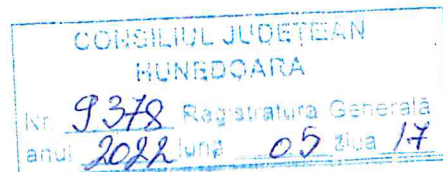 CONSILIUL JUDEȚEAN
HUNEDOARA
Nr. 9378 Registratura Generală
anul 2022 luna 05 ziua 17